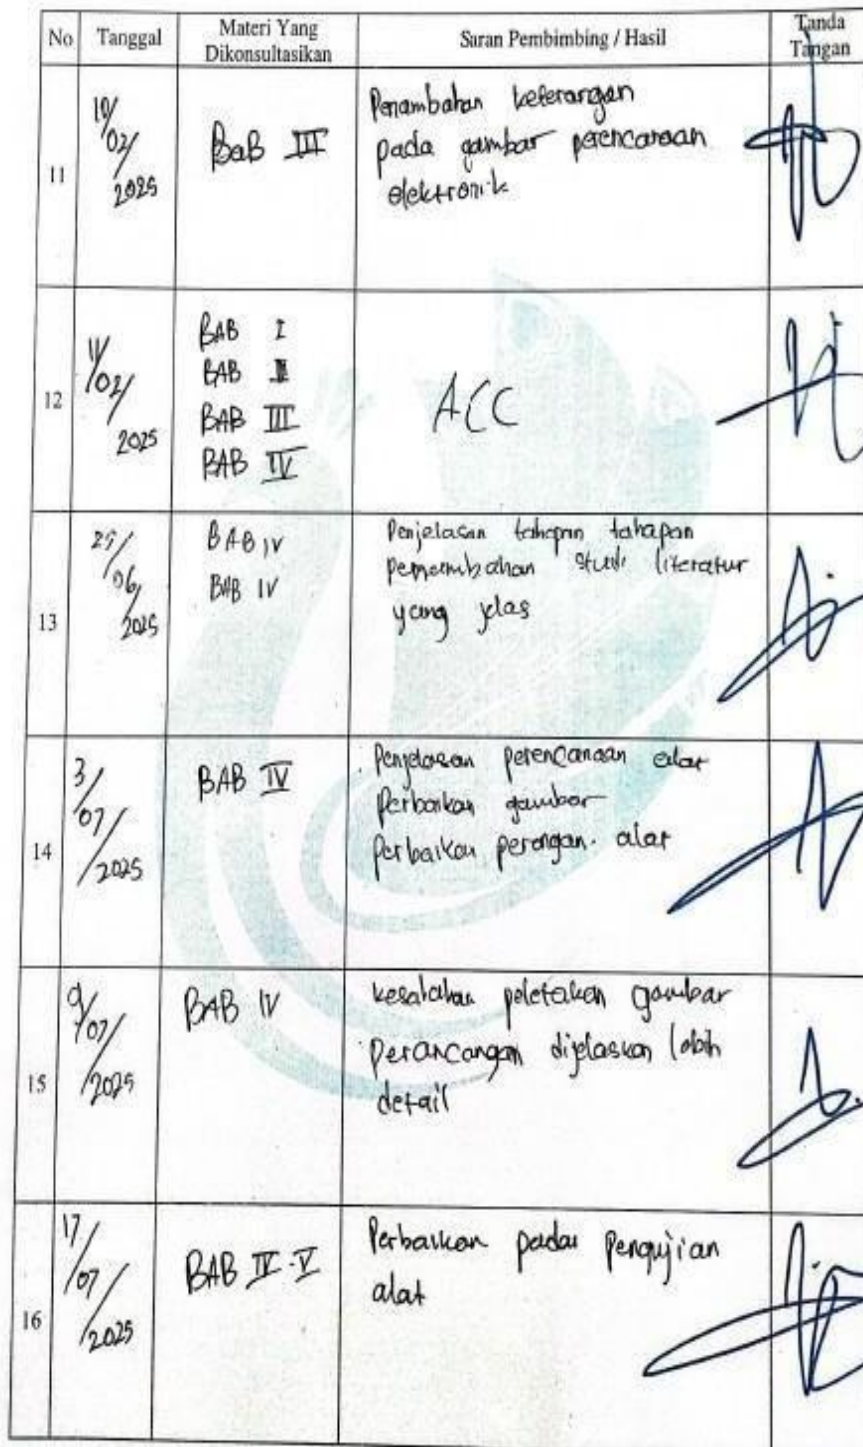 No Tanggal Materi Yang Dikonsultasikan Saran Pembimbing / Hasil Tanda Tangan
11
10/02/2025
BaB III
Penambahan keterangan
pada gambar perencanaan
elektronik
12
11/02/2025
BAB I
BAB II
BAB III
BAB IV
ACC
13
25/06/2025
BAB IV
BAB IV
Penjelasan tahapan tahapan
studi literatur
yang jelas
14
3/07/2025
BAB IV
Penjelasan perencanaan alat
Perbaikan gambar
Perbaikan alat
15
9/07/2025
BAB IV
kesalahan peletakan gambar
Perancangan dijelaskan lebih
detail
16
17/07/2025
BAB IV-V
Perbaikan pada Pengujian
alat